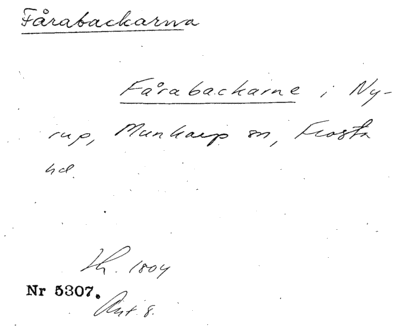 Fårabackarna
Fårabackarne i Ny-
rup, Munkarp sn, Frosta
hd.
Lh. 1804
Nr 5307.
Akt 8.